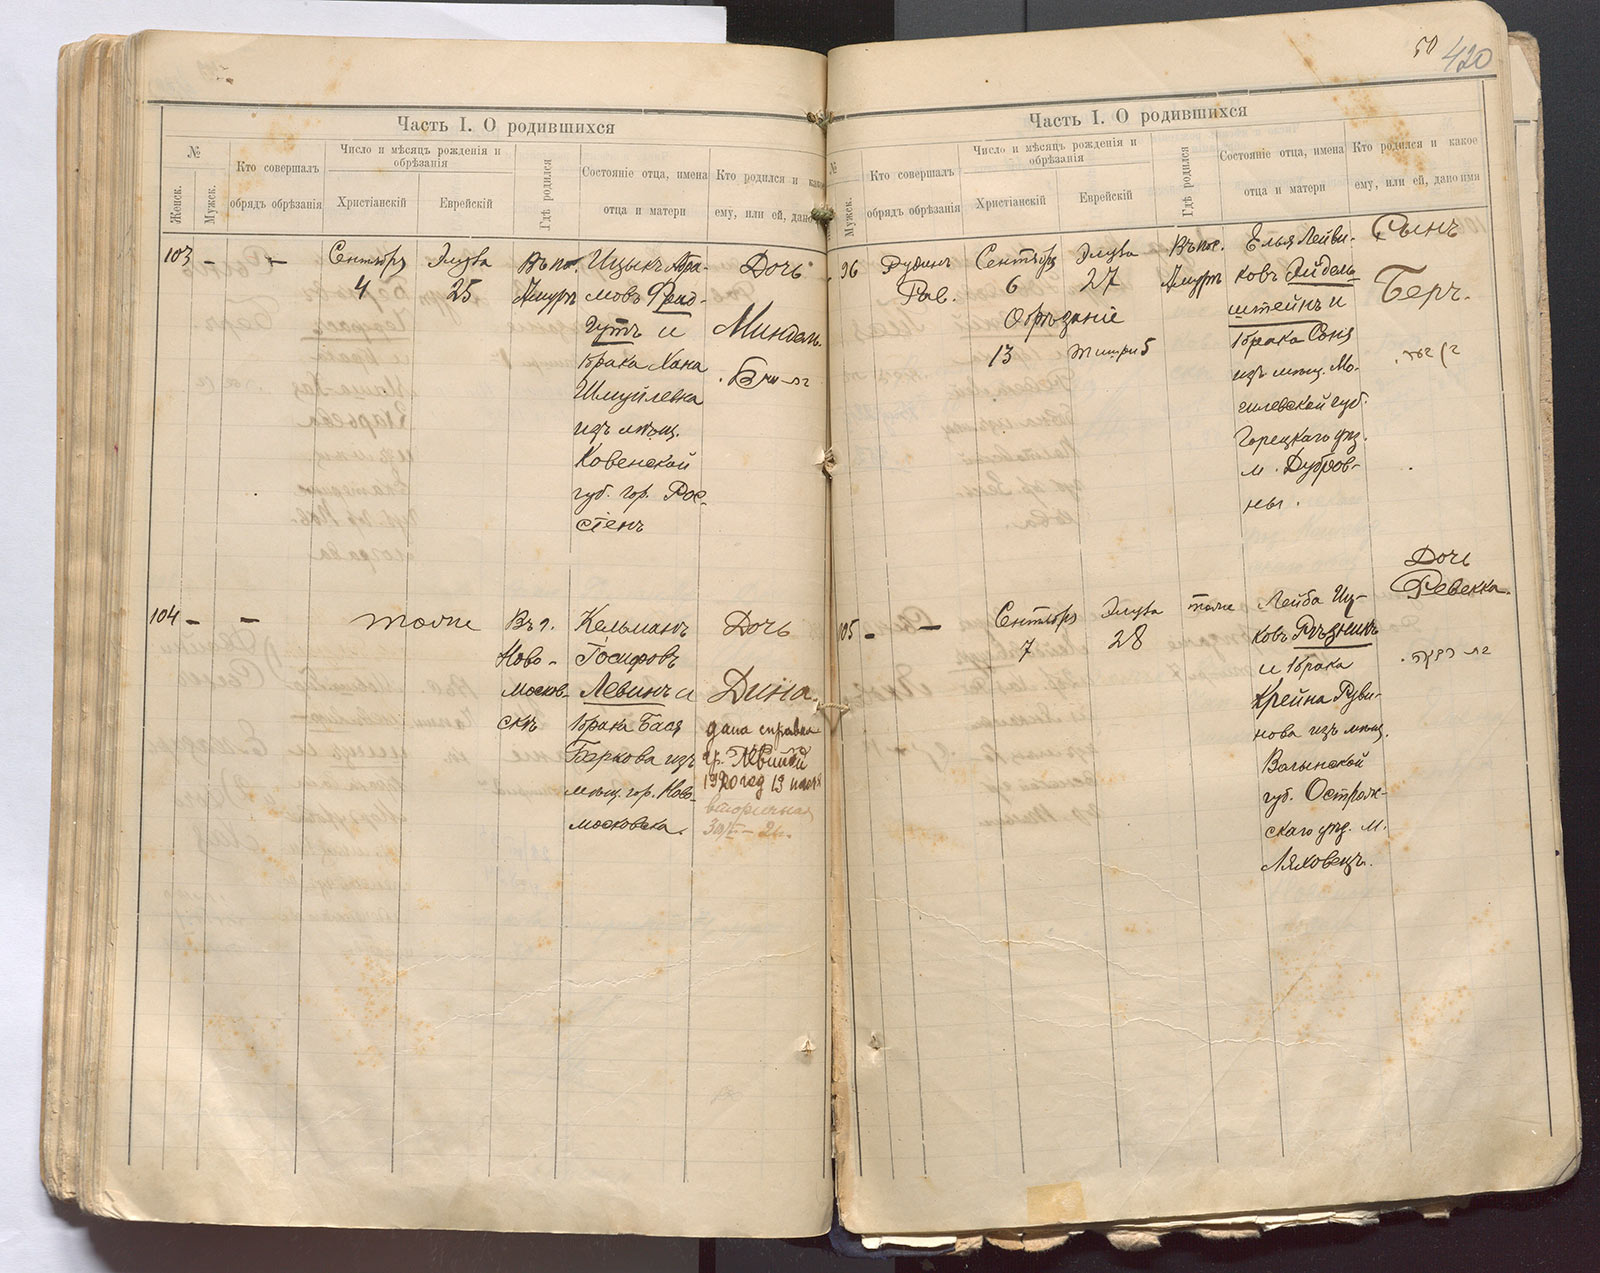 50 420
Часть I. О родившихся
№
Женск.
Мужск.
Кто совершалъ
обрядъ обрѣзанія
Число и мѣсяцъ рожденія и
обрѣзанія
Христіанскій
Еврейскій
Гдѣ родился
Состояніе отца, имена
отца и матери
Кто родился и какое
ему, или ей, дано
103 - -
Сентябрь
4
Элула
25
Въ пос.
Амуръ
Ицыкъ Абра-
мовъ
и
брака Хана
Шмуйлевна
изъ мѣщ.
Ковенской
губ. гор. Рос-
сіенъ
Дочь
Миндель.
104 - -
тоже
Въ г.
Ново-
москов-
скъ
Кельманъ
Іосифовъ
Левинъ и
брака Бася
Беркова изъ
мѣщ. гор. Ново-
московска.
Дочь
Дина.
дана справка
гр.
1920 год 13
вторичная
Часть I. О родившихся
№
Мужск.
Кто совершалъ
обрядъ обрѣзанія
Число и мѣсяцъ рожденія и
обрѣзанія
Христіанскій
Еврейскій
Гдѣ родился
Состояніе отца, имена
отца и матери
Кто родился и какое
ему, или ей, дано имя
96
Рудинъ
Рав.
Сентябрь
6
Элула
27
Обрѣзаніе
13
Тишри 5
Въ пос.
Амуръ
Элья Лейви-
ковъ Эйдель-
штейнъ и
брака Соня
изъ мѣщ. Мо-
гилевской губ.
Горецкаго уѣз.
м. Дубров-
ны.
Сынъ
Беръ.
105 - -
Сентябрь
7
Элула
28
тоже
Лейба Иц-
ковъ Рѣзникъ
и брака
Крейна Руви-
нова изъ мѣщ.
Волынской
губ. Острож-
скаго уѣз. м.
Ляховецъ.
Дочь
Ревекка.
בת רבקה